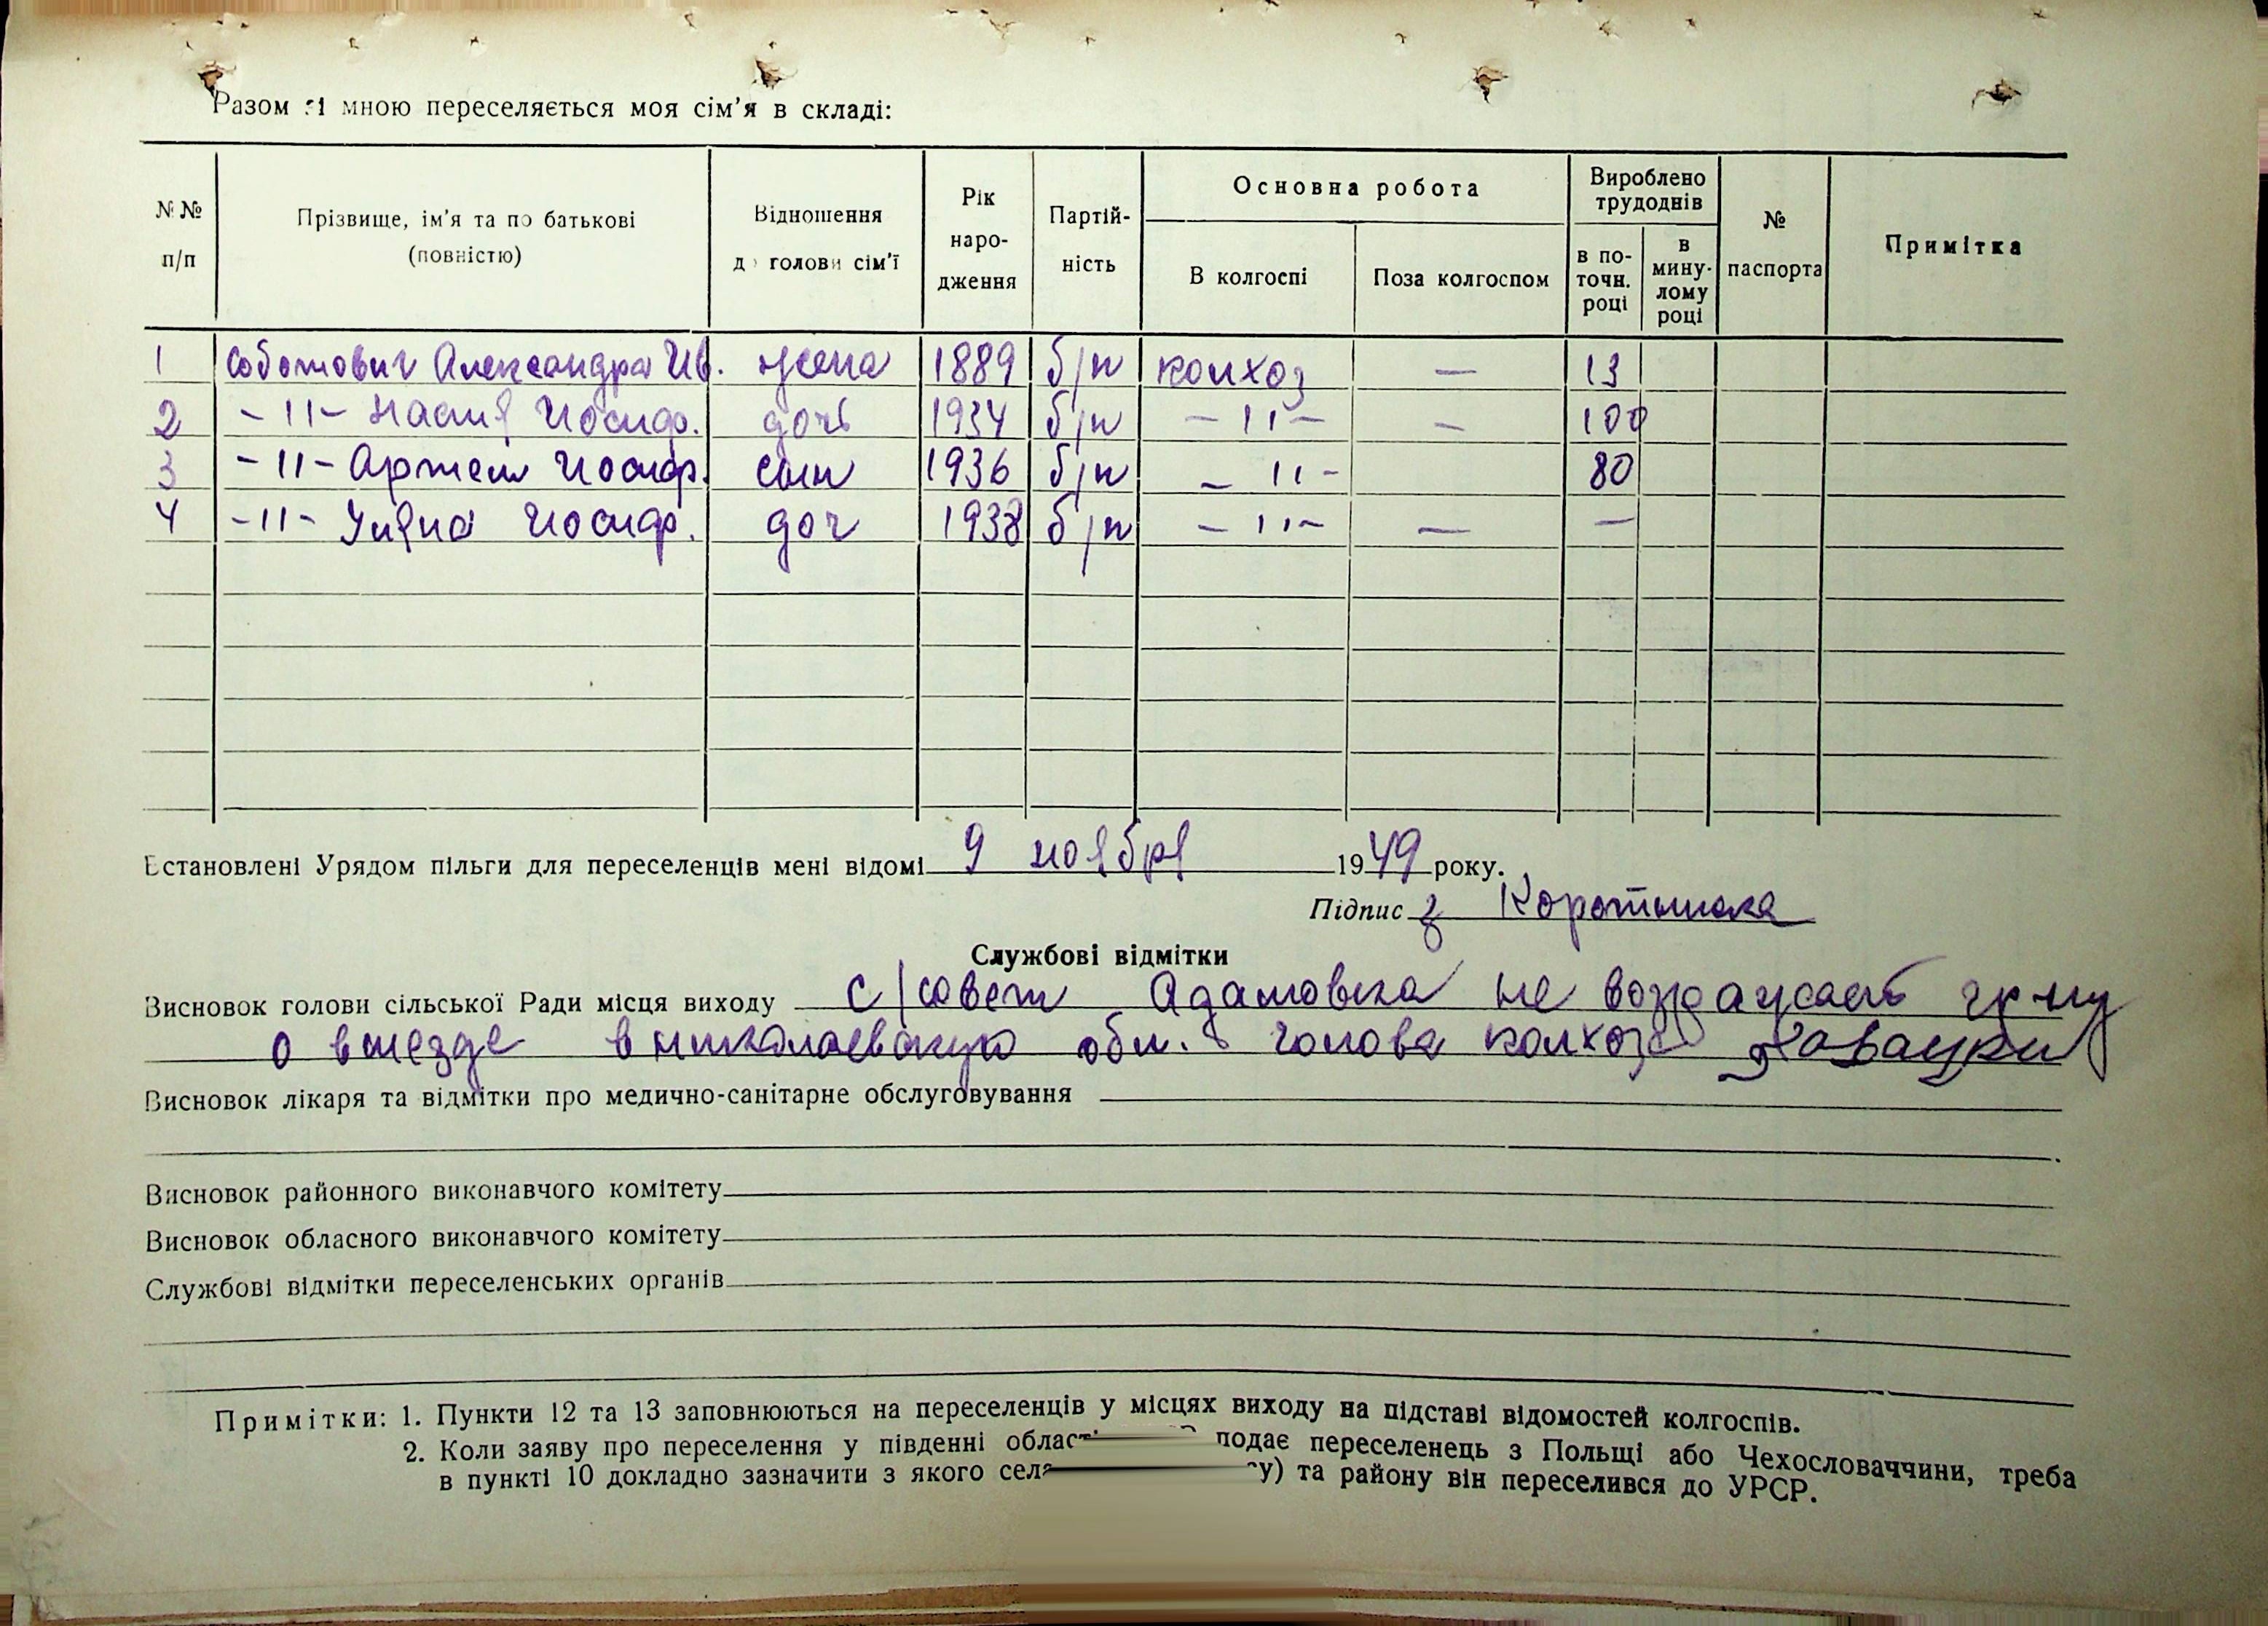 Разом зі мною переселяється моя сім'я в складі:
№№ п/п
Прізвище, ім'я та по батькові (повністю)
Відношення до голови сім'ї
Рік народження
Партій-ність
Основна робота
В колгоспі
Поза колгоспом
Вироблено трудоднів
в по-точн. році
в мину-лому році
№ паспорта
Примітка
1 Соботович Александра Ив. жена 1889 б/п колхоз — 13
2 -11- Настя Иосиф. дочь 1934 б/п -11- - 100
3 -11- Артем Иосиф. сын 1936 б/п -11- 80
4 -11- Иосиф. доч 1938 б/п -11- — —
Встановлені Урядом пільги для переселенців мені відомі 9 ноября 1949 року.
Підпис
Службові відмітки
Висновок голови сільської Ради місця виходу с/совет Адамовка не возражает
о выезде в николаевскую обл. голова колхоза
Висновок лікаря та відмітки про медично-санітарне обслуговування
Висновок районного виконавчого комітету
Висновок обласного виконавчого комітету
Службові відмітки переселенських органів
Примітки: 1. Пункти 12 та 13 заповнюються на переселенців у місцях виходу на підставі відомостей колгоспів.
2. Коли заяву про переселення у південні подає переселенець з Польщі або Чехословаччини, треба
в пункті 10 докладно зазначити з якого та району він переселився до УРСР.